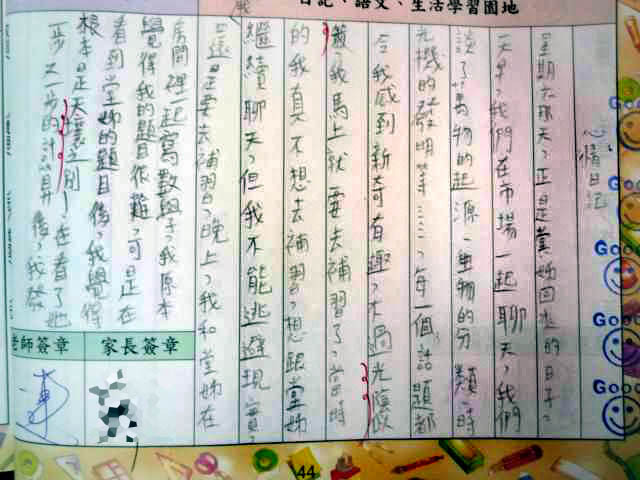 日記、語文、生活學習園地
心情日記
星期六那天，正是堂姊回來的日子。
一大早，我們在市場一起聊天，我們
談了萬物的起源、生物的分類、時
光機的發明等……，每一個話題都
令我感到新奇有趣，不過光陰似
箭，我馬上就要去補習了，當時
的我真不想去補習，想跟堂姊
繼續聊天，但我不能逃避現實，
還是要去補習。晚上，我和堂姊在
房間裡一起寫數學，我原本
覺得我的題目很難，可是在
看到堂姊的題目後，我覺得
根本是天壤之別！在看了她
一步又一步的計算後，我發
家長簽章
老師簽章
Good
Good
Good
Good
Good
44